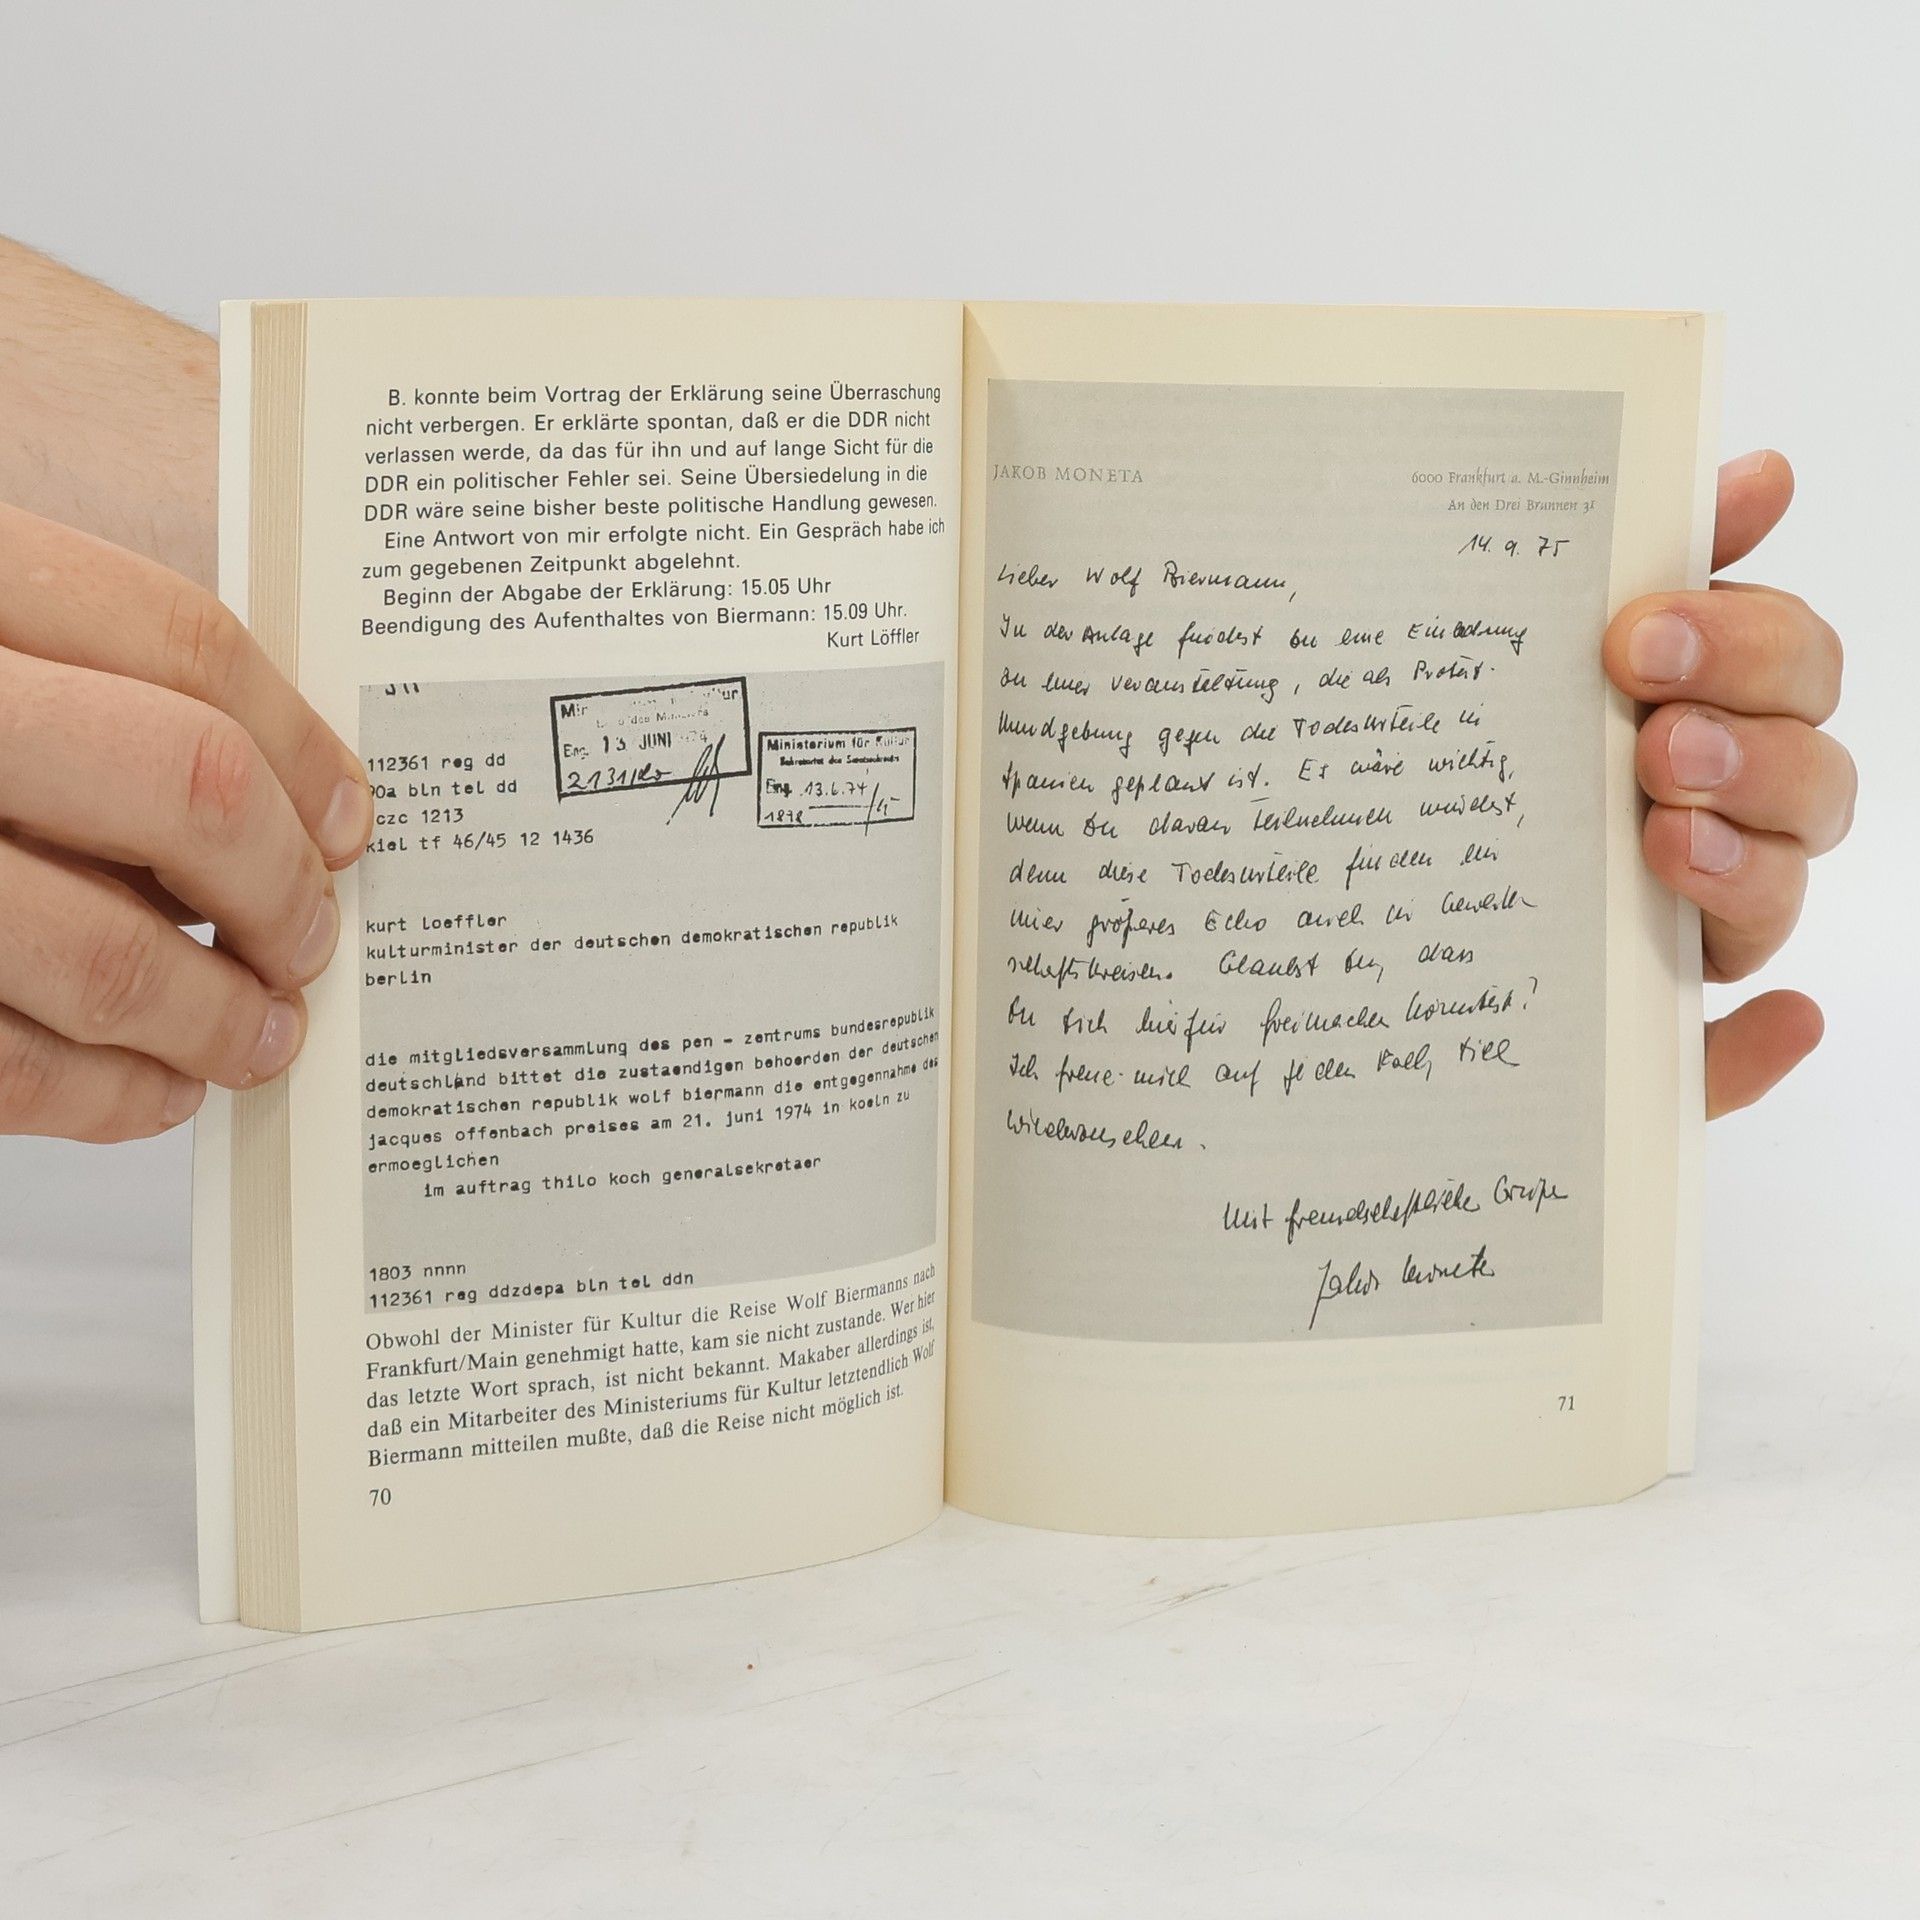 B. konnte beim Vortrag der Erklärung seine Überraschung
nicht verbergen. Er erklärte spontan, daß er die DDR nicht
verlassen werde, da das für ihn und auf lange Sicht für die
DDR ein politischer Fehler sei. Seine Übersiedelung in die
DDR wäre seine bisher beste politische Handlung gewesen.
Eine Antwort von mir erfolgte nicht. Ein Gespräch habe ich
zum gegebenen Zeitpunkt abgelehnt.
Beginn der Abgabe der Erklärung: 15.05 Uhr
Beendigung des Aufenthaltes von Biermann: 15.09 Uhr.
Kurt Löffler
Eing. 13 JUNI
Ministerium für Kultur
Sekretariat des Staatssekretärs
Eing. 13.6.74
1878
112361 reg dd
90a bln tel dd
czc 1213
kiel tf 46/45 12 1436
kurt loeffler
kulturminister der deutschen demokratischen republik
berlin
die mitgliedsversammlung des pen - zentrums bundesrepublik
deutschland bittet die zustaendigen behoerden der deutschen
demokratischen republik wolf biermann die entgegennahme des
jacques offenbach preises am 21. juni 1974 in koeln zu
ermoeglichen
im auftrag thilo koch generalsekretaer
1803 nnnn
112361 reg ddzdepa bln tel ddn
Obwohl der Minister für Kultur die Reise Wolf Biermanns nach
Frankfurt/Main genehmigt hatte, kam sie nicht zustande. Wer hier
das letzte Wort sprach, ist nicht bekannt. Makaber allerdings ist,
daß ein Mitarbeiter des Ministeriums für Kultur letztendlich Wolf
Biermann mitteilen mußte, daß die Reise nicht möglich ist.
70
JAKOB MONETA
6000 Frankfurt a. M.-Ginnheim
An den Drei Brunnen 31
14. 9. 75
Lieber Wolf Biermann,
In der Anlage findest Du eine Einladung
zu einer Veranstaltung, die als Protest-
kundgebung gegen die Todesurteile in
Spanien geplant ist. Es wäre wichtig,
wenn Du daran teilnehmen würdest,
denn diese Todesurteile finden ein
immer größeres Echo auch in Gewerk-
schaftskreisen. Glaubst Du, dass
Du Dich hierfür freimachen könntest?
Ich freue mich auf jeden Fall, Dich
wiederzusehen.
Mit freundschaftlichen Grüßen
Jakob Moneta
71